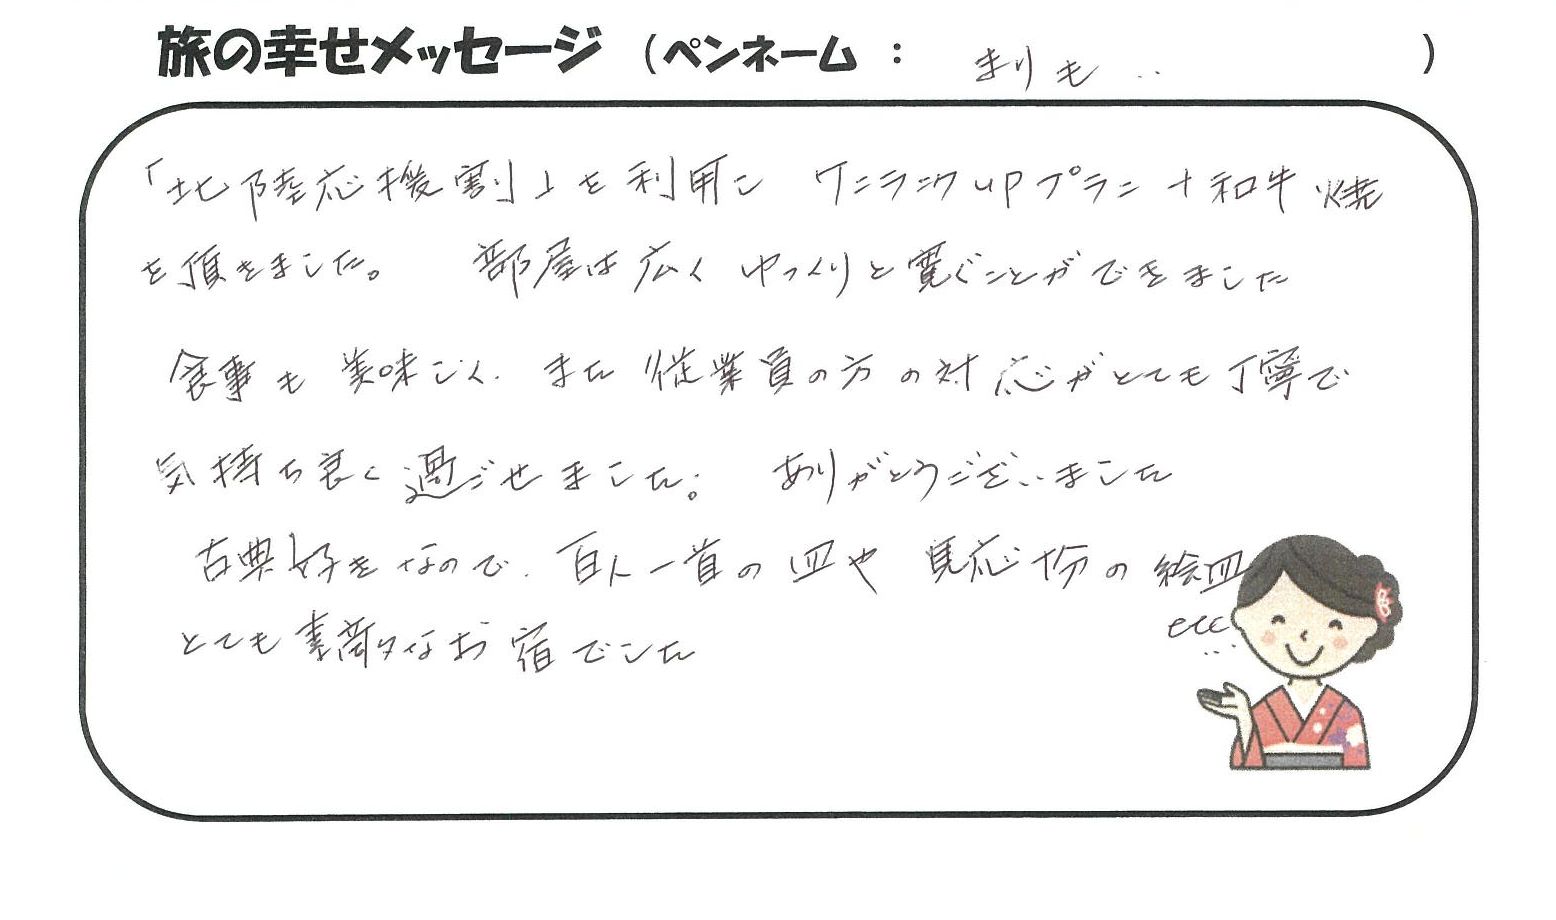 旅の幸せメッセージ (ペンネーム : まりも‥ )
「北陸応援割」を利用し ワンランクupプラン+和牛焼
を頂きました。 部屋は広く ゆっくりと寛ぐことができました
食事も美味しく、また従業員の方の対応がとても丁寧で
気持ち良く過ごせました。 ありがとうございました
古典好きなので、百人一首の皿や 見応十分の絵皿
etc…
とても素敵なお宿でした